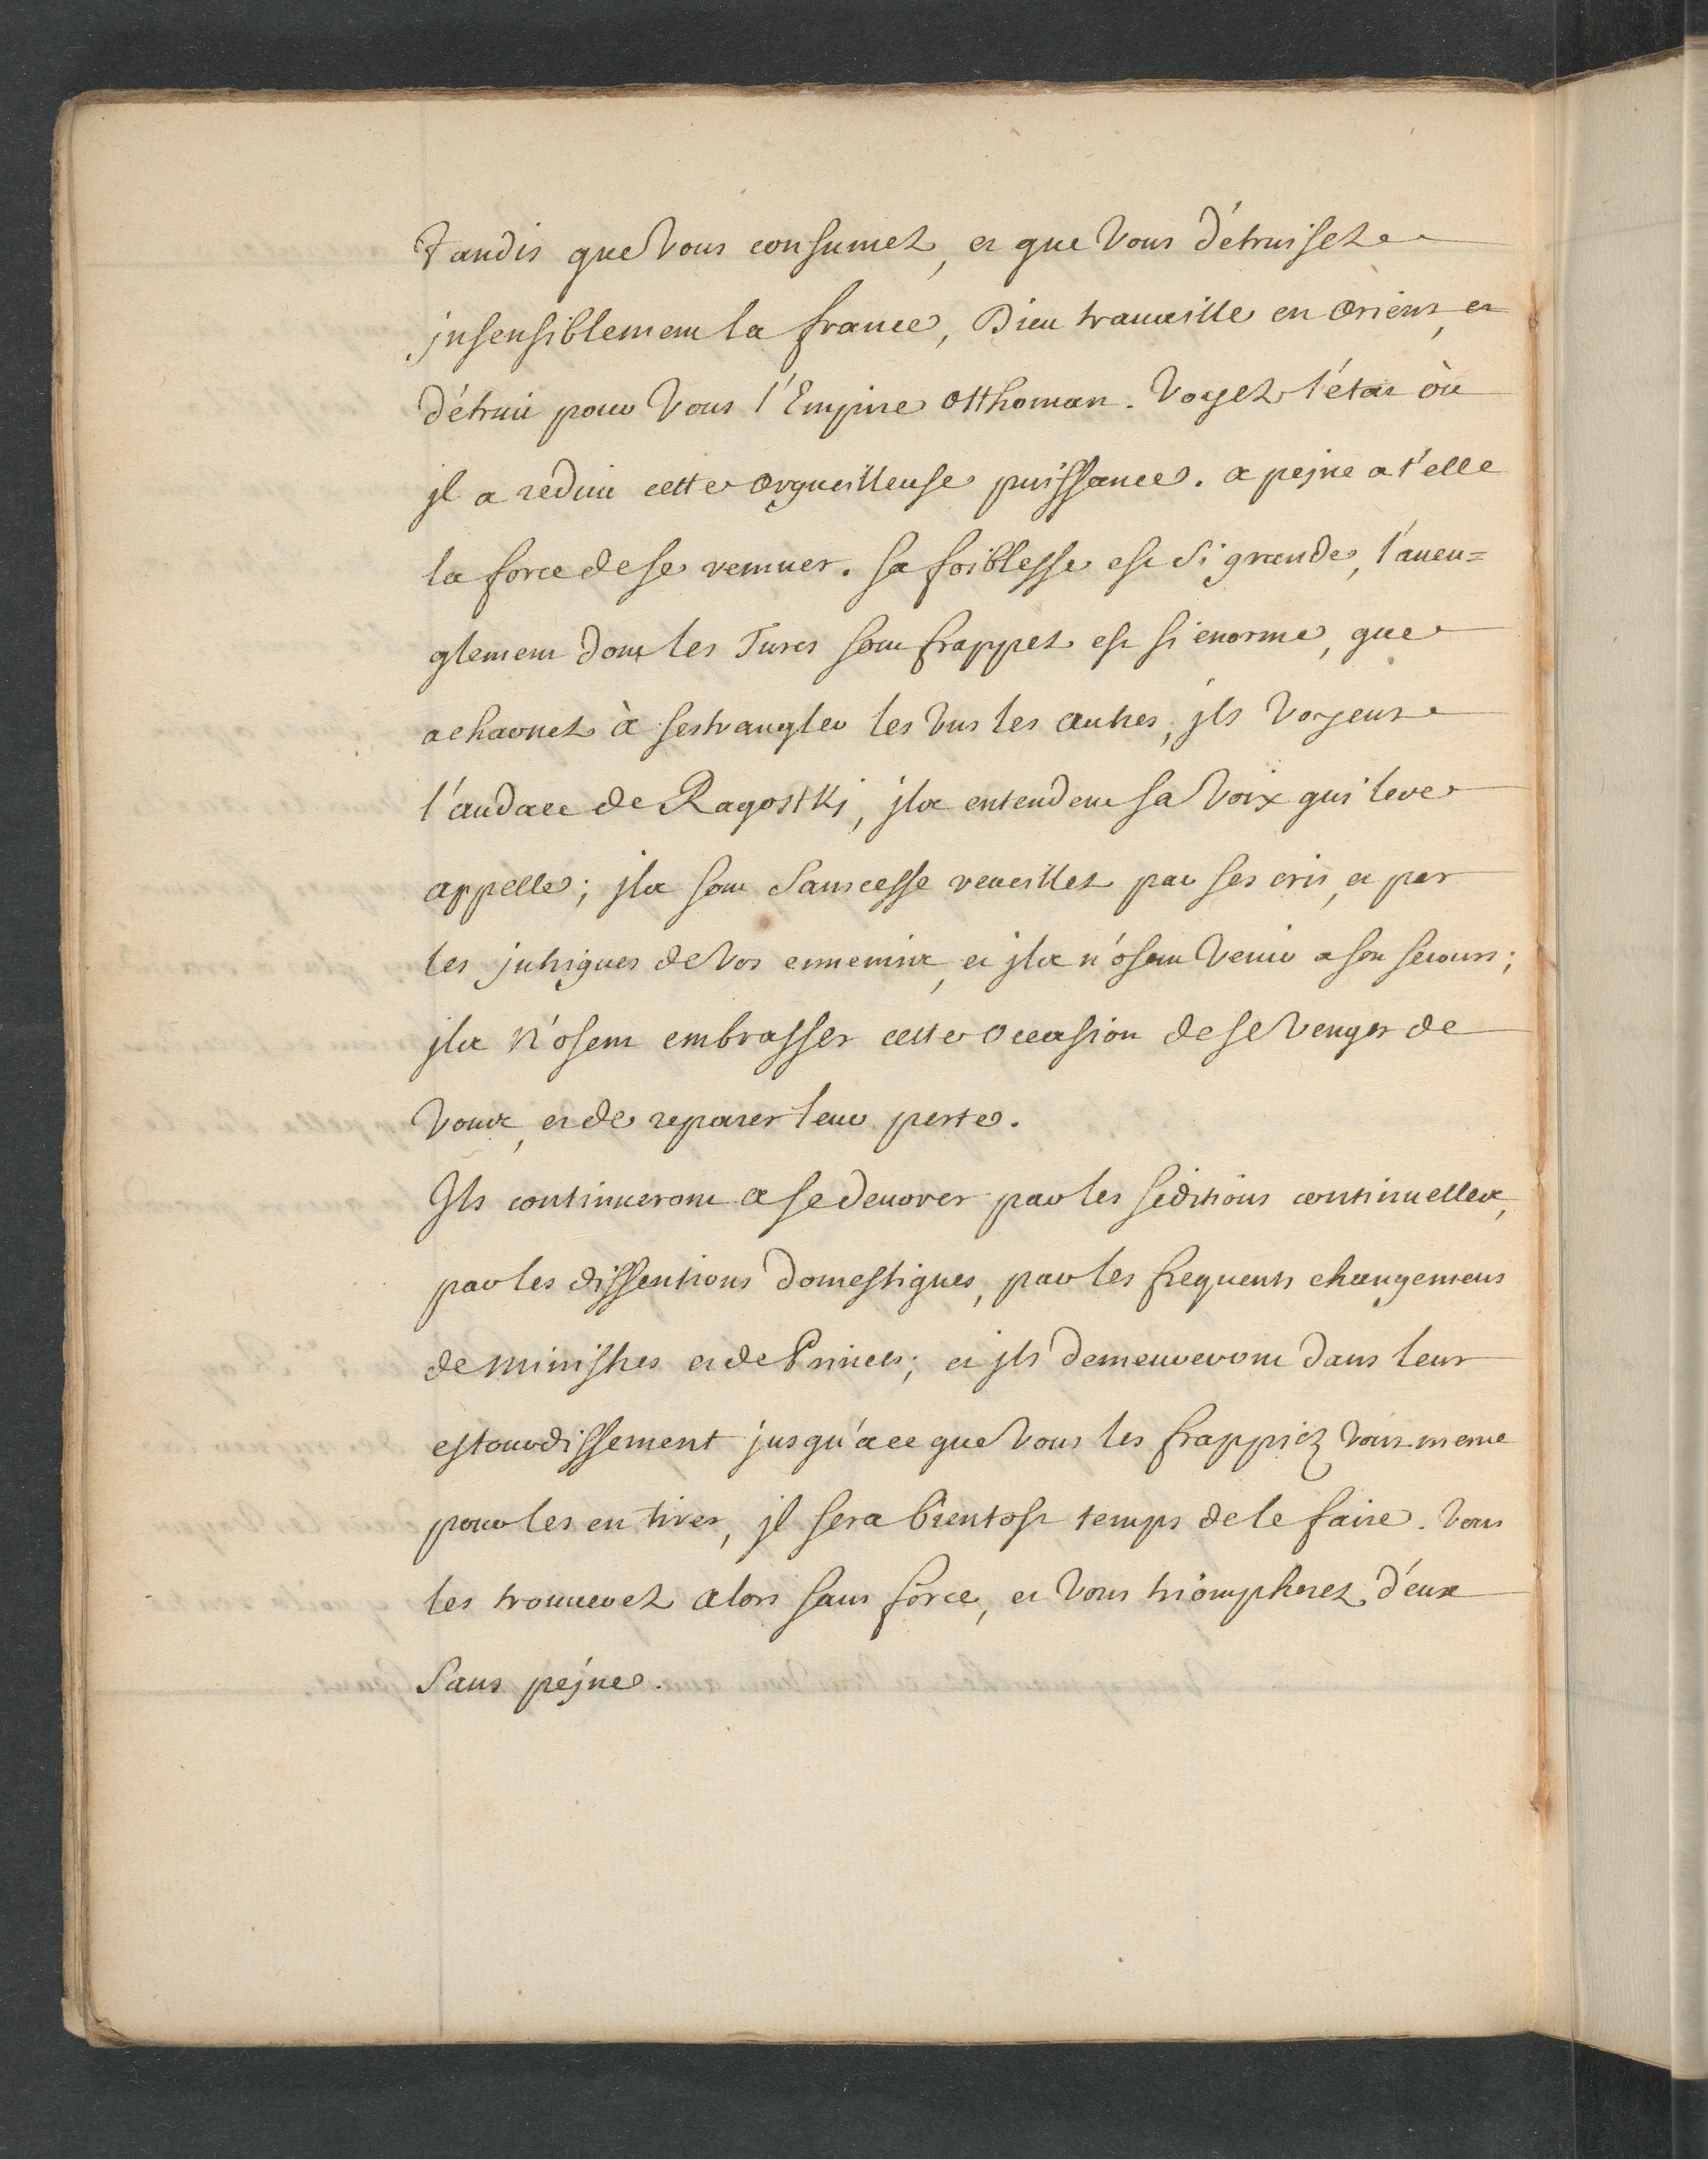 Tandis que Vous consumez, et que Vous détruisez
jnsensiblement la france, Dieu trauaille en Orient, et
détruit pour Vous l'Empire Otthoman. Voyez l'état où
jl a réduit cette Orgueilleuse puissance. a pejne a t'elle
la force de se remuer. Sa foiblesse est Si grande, l'aueu=
glement dont les Turcs sont frappez est si enorme, que
acharnez à sestrangler les Vns les autres, jls Voyent
l'audace de Ragostkj, jls entendent sa Voix qui leve
appelle; jls sont Sans cesse reueillez par ses cris, et par
les jntrigues de Vos ennemis, et jls n'osent Venir a son secours;
jls n'osent embrasser cette Occasion de se Venger de
Vous, et de reparer leur perte.
Jls continueront a se deuorer par les séditions continuelles,
par les dissentions Domestiques, par les frequents changemens
de Ministres et de Princes; et jls demeureront dans leur
estourdissement jusqu'a ce que Vous les frappiez Vous-meme
pour les en tirer, jl sera bientost temps de le faire. Vous
les trouuerez alors sans force, et Vous triompherez d'eux
Sans pejne.